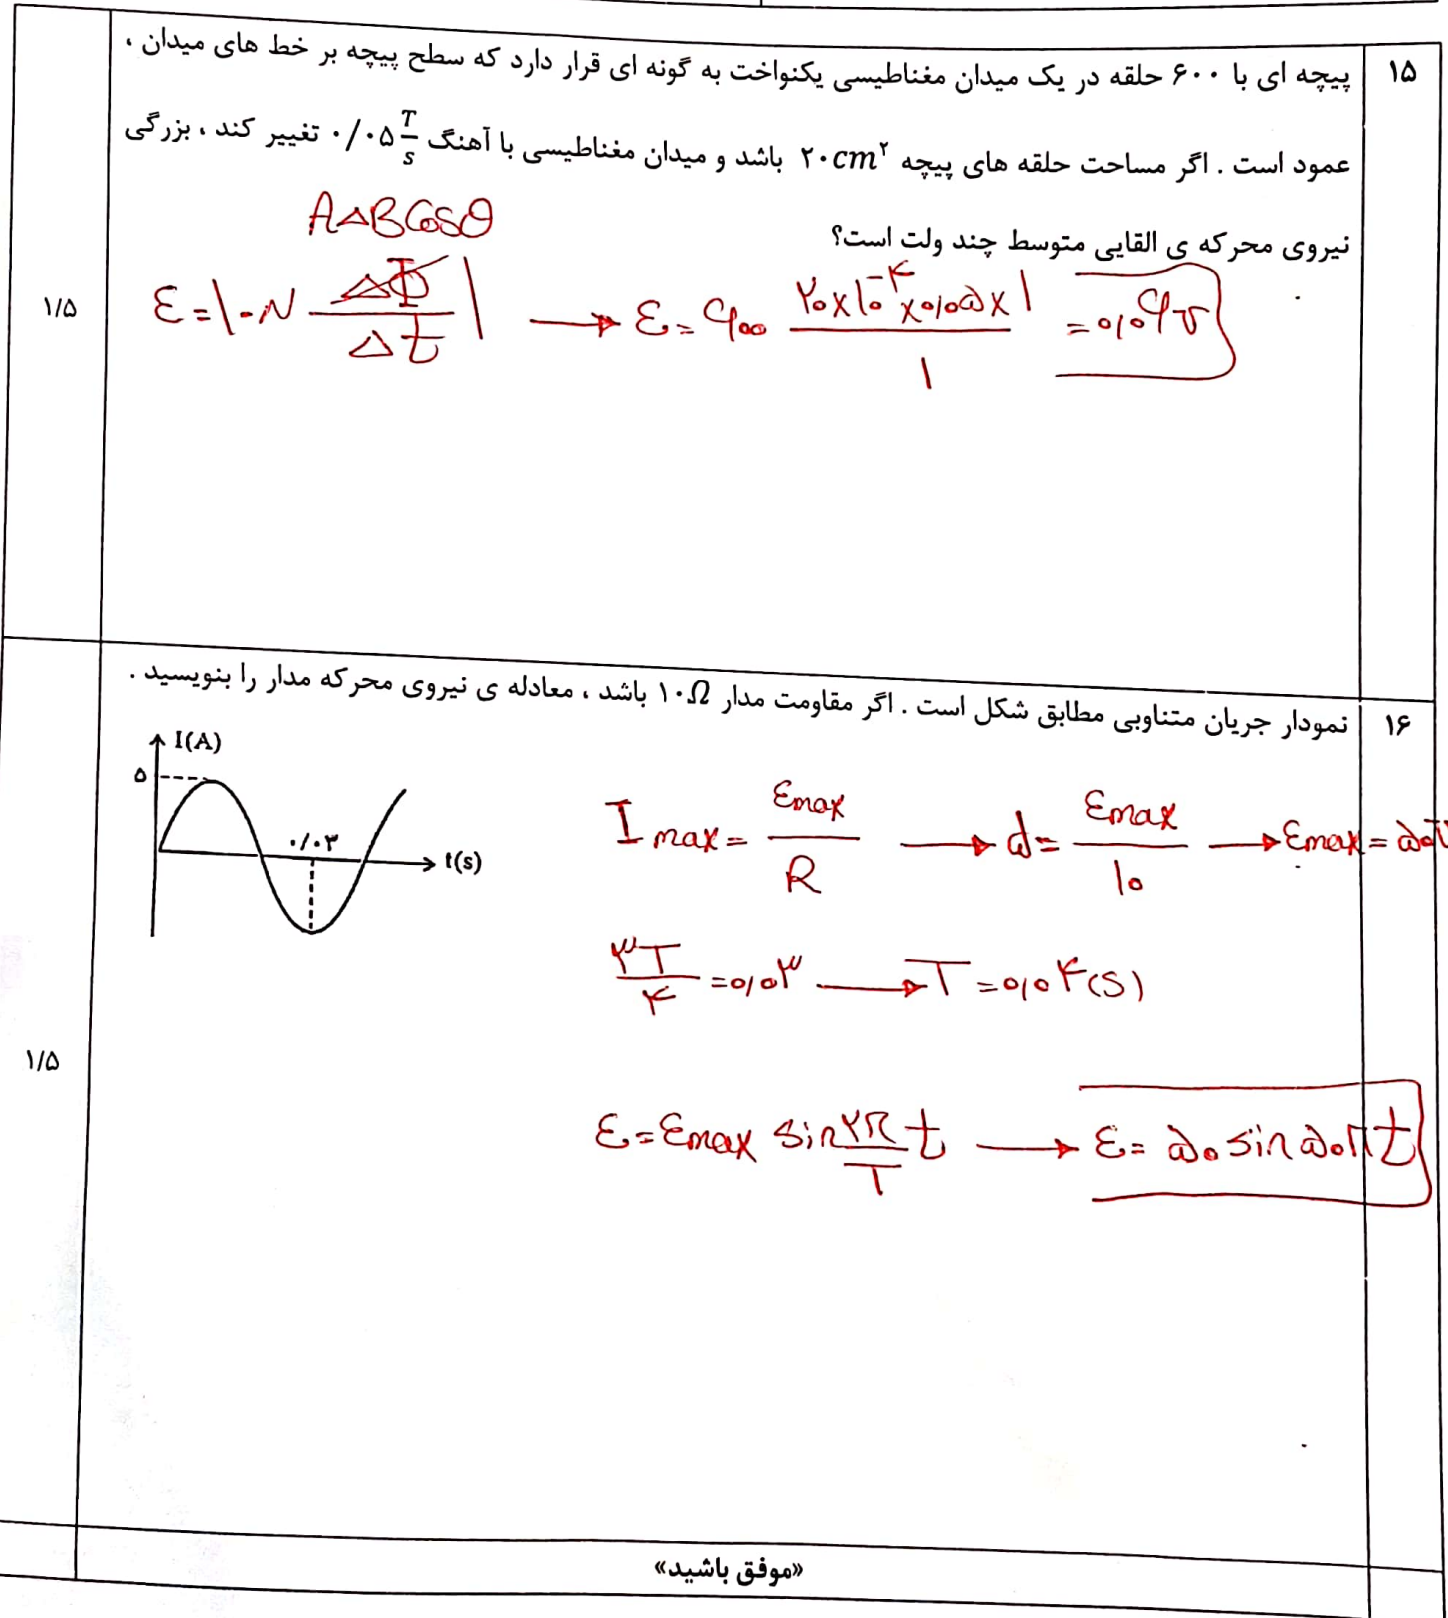 ۱۵
پیچه ای با ۶۰۰ حلقه در یک میدان مغناطیسی یکنواخت به گونه ای قرار دارد که سطح پیچه بر خط های میدان ،
عمود است . اگر مساحت حلقه های پیچه ۲۰cm² باشد و میدان مغناطیسی با آهنگ ۰/۰۵ T/s تغییر کند ، بزرگی
نیروی محرکه ی القایی متوسط چند ولت است؟
AΔBCosθ
ε=|-N ΔΦ/Δt| → ε=۶۰۰ ۲۰×۱۰⁻۴×۰,۰۵×۱/۱ =۰,۰۶v
۱/۵
۱۶
نمودار جریان متناوبی مطابق شکل است . اگر مقاومت مدار ۱۰Ω باشد ، معادله ی نیروی محرکه مدار را بنویسید .
I(A)
۵
۰/۰۳
t(s)
I max= εmax/R → ۵= εmax/۱۰ → εmax=۵۰v
۳T/۴ =۰,۰۳ → T=۰,۰۴(s)
ε=εmax sin ۲π/T t → ε= ۵۰ sin ۵۰πt
۱/۵
«موفق باشید»